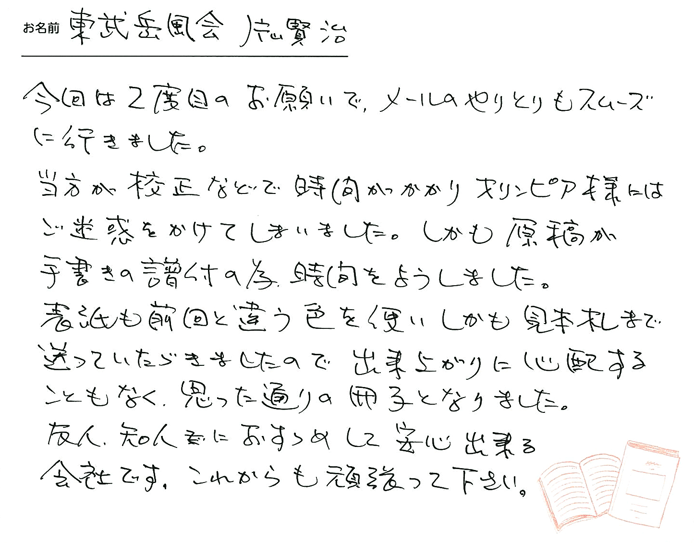 お名前 東武岳風会 賢治
今回は2度目のお願いで、メールのやりとりもスムーズ
に行きました。
当方が校正などで時間がかかりオリンピア様には
ご迷惑をかけてしまいました。しかも原稿が
手書きの譜付の為、時間をようしました。
表紙も前回と違う色を使いしかも見本札まで
送っていただきましたので出来上がりに心配する
こともなく、思った通りの冊子となりました。
友人、知人におすすめして安心出来る
会社です。これからも頑張って下さい。